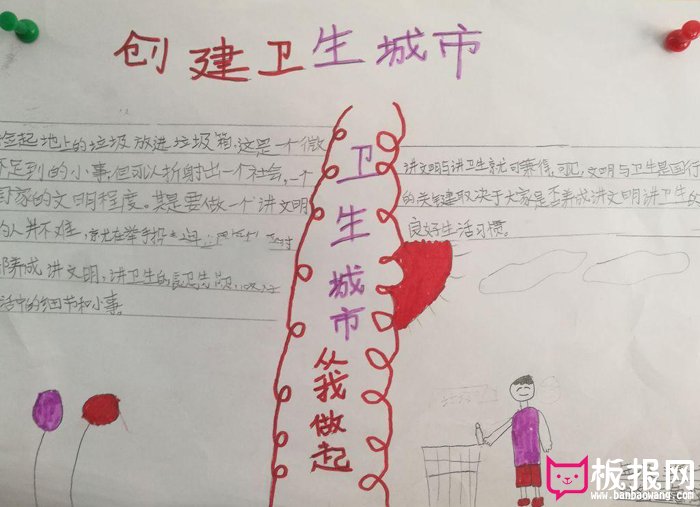 创建卫生城市
捡起地上的垃圾放进垃圾箱,这是一个微
不足到的小事,但可以折射出一个社会,一个
国家的文明程度。其是要做一个讲文明
的人并不难,就在举手投
养成讲文明,讲卫生的
活中的细节和小事
卫生城市
从我做起
讲文明与讲卫生就可兼得,可见,文明与卫生是
的关键取决于大家是否养成讲文明讲卫生的
良好生活习惯。
板报网
www.banbaowang.com